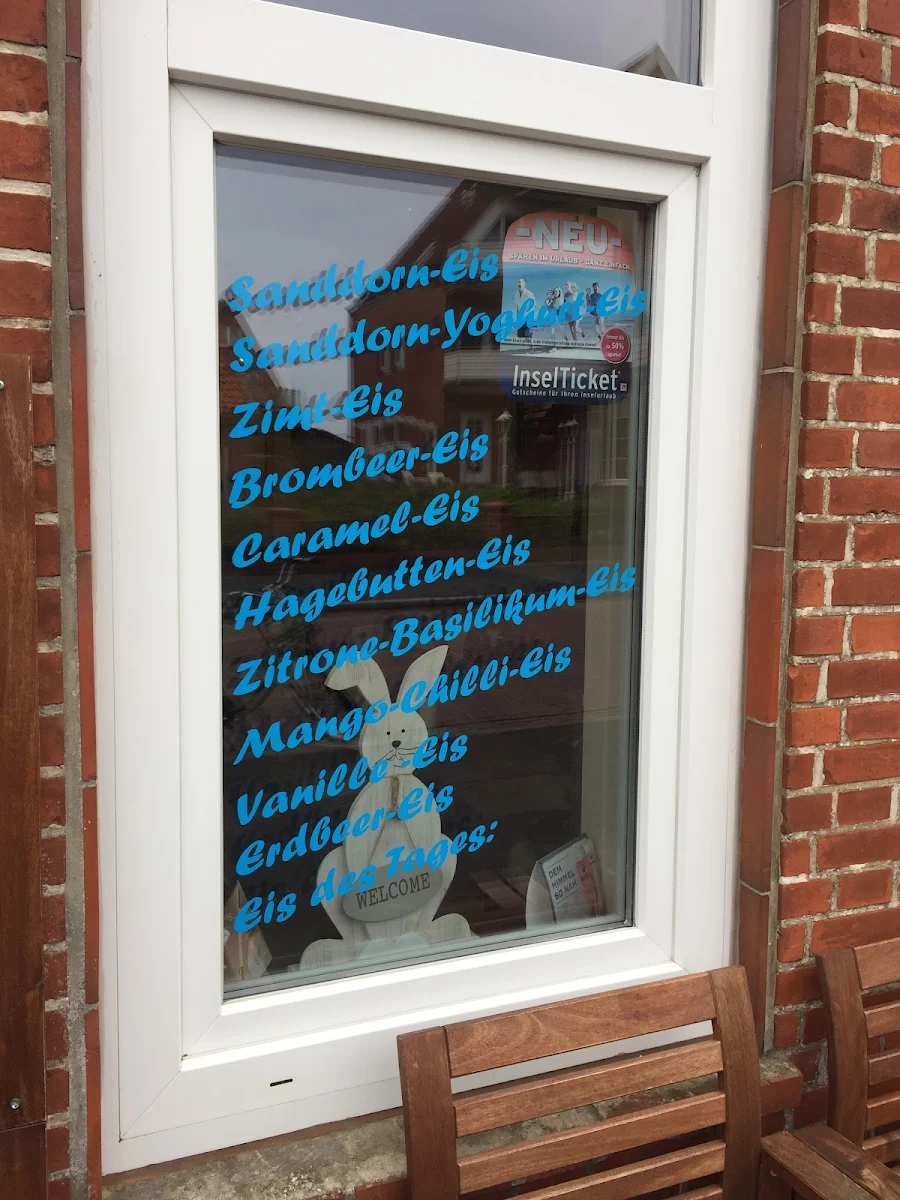 -NEU-
SPAREN IM URLAUB - GANZ EINFACH
Sanddorn-Eis
Sanddorn-Yoghurt-Eis
zu 50%
InselTicket
Gutscheine für Ihren Inselurlaub
Zimt-Eis
Brombeer-Eis
Caramel-Eis
Hagebutten-Eis
Zitrone-Basilikum-Eis
Mango-Chilli-Eis
Vanille -Eis
Erdbeer-Eis
Eis des Tages:
WELCOME
DEM
HIMMEL
SO NAH